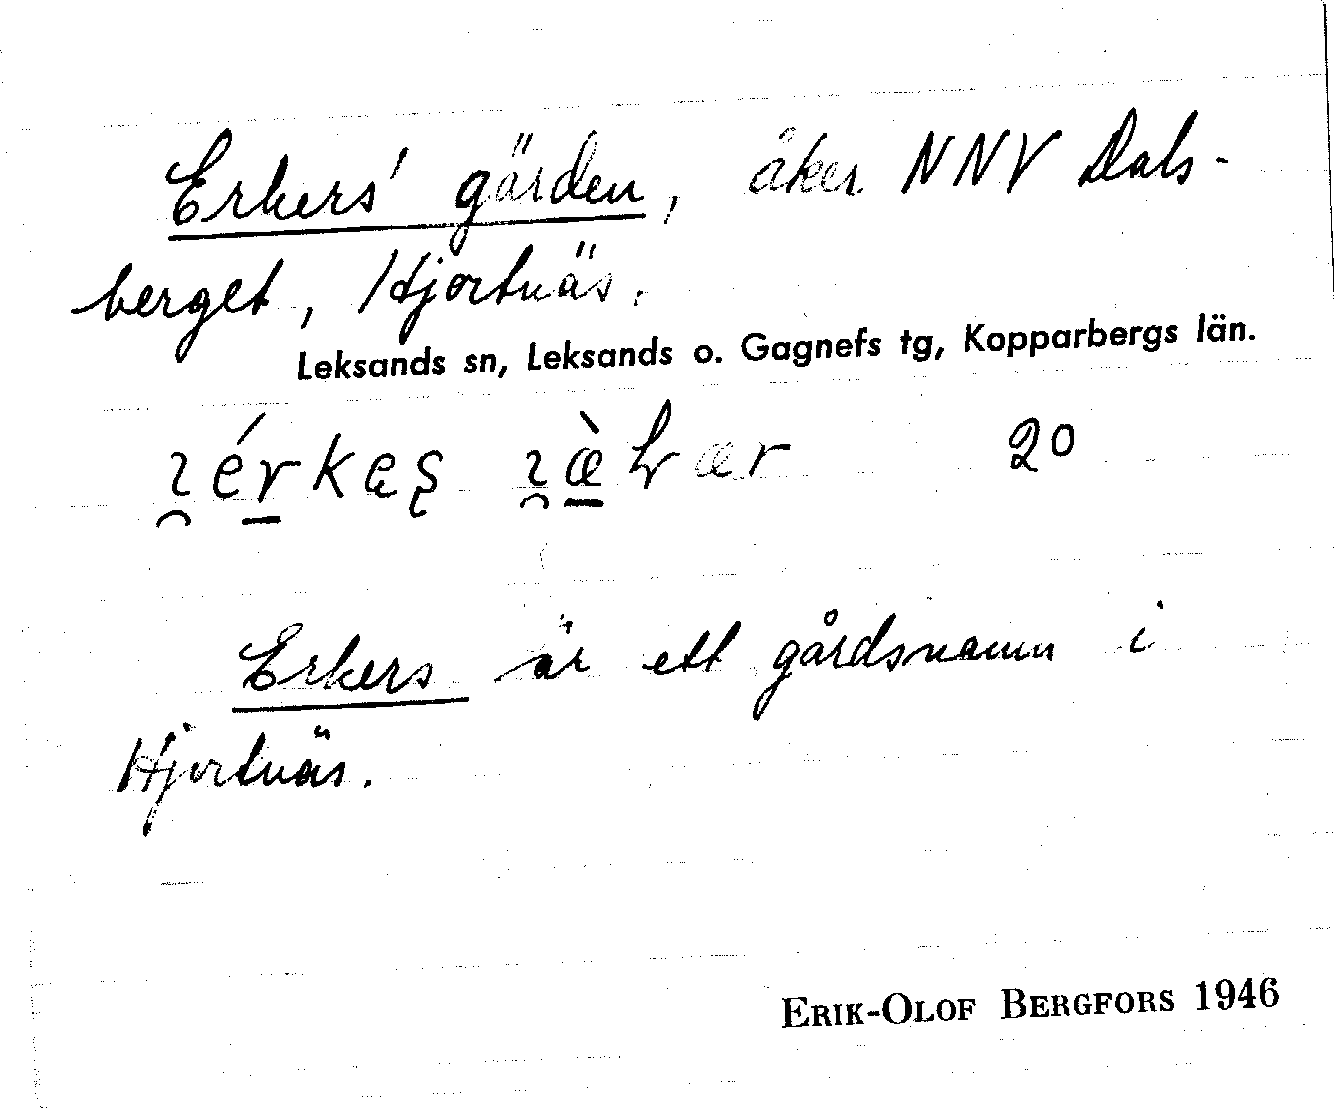 Erkers' gärden, åker NNV Dals-
berget, Hjortnäs.
Leksands sn, Leksands o. Gagnefs tg, Kopparbergs län.
20
Erkers är ett gårdsnamn i
Hjortnäs.
ERIK-OLOF BERGFORS 1946